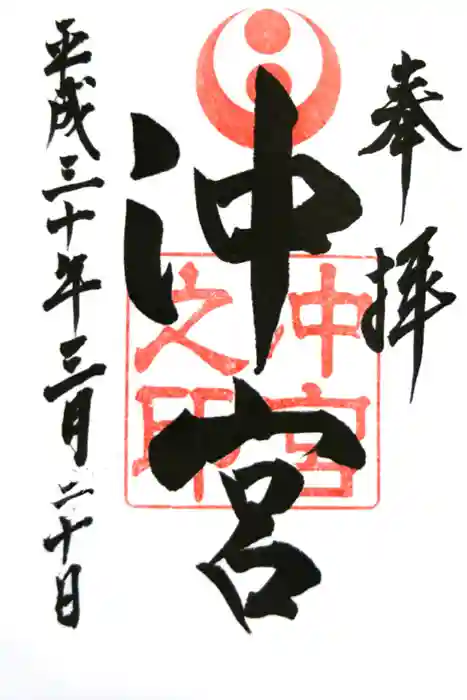 奉拝
沖宮
沖宮之印
平成三十年三月二十日